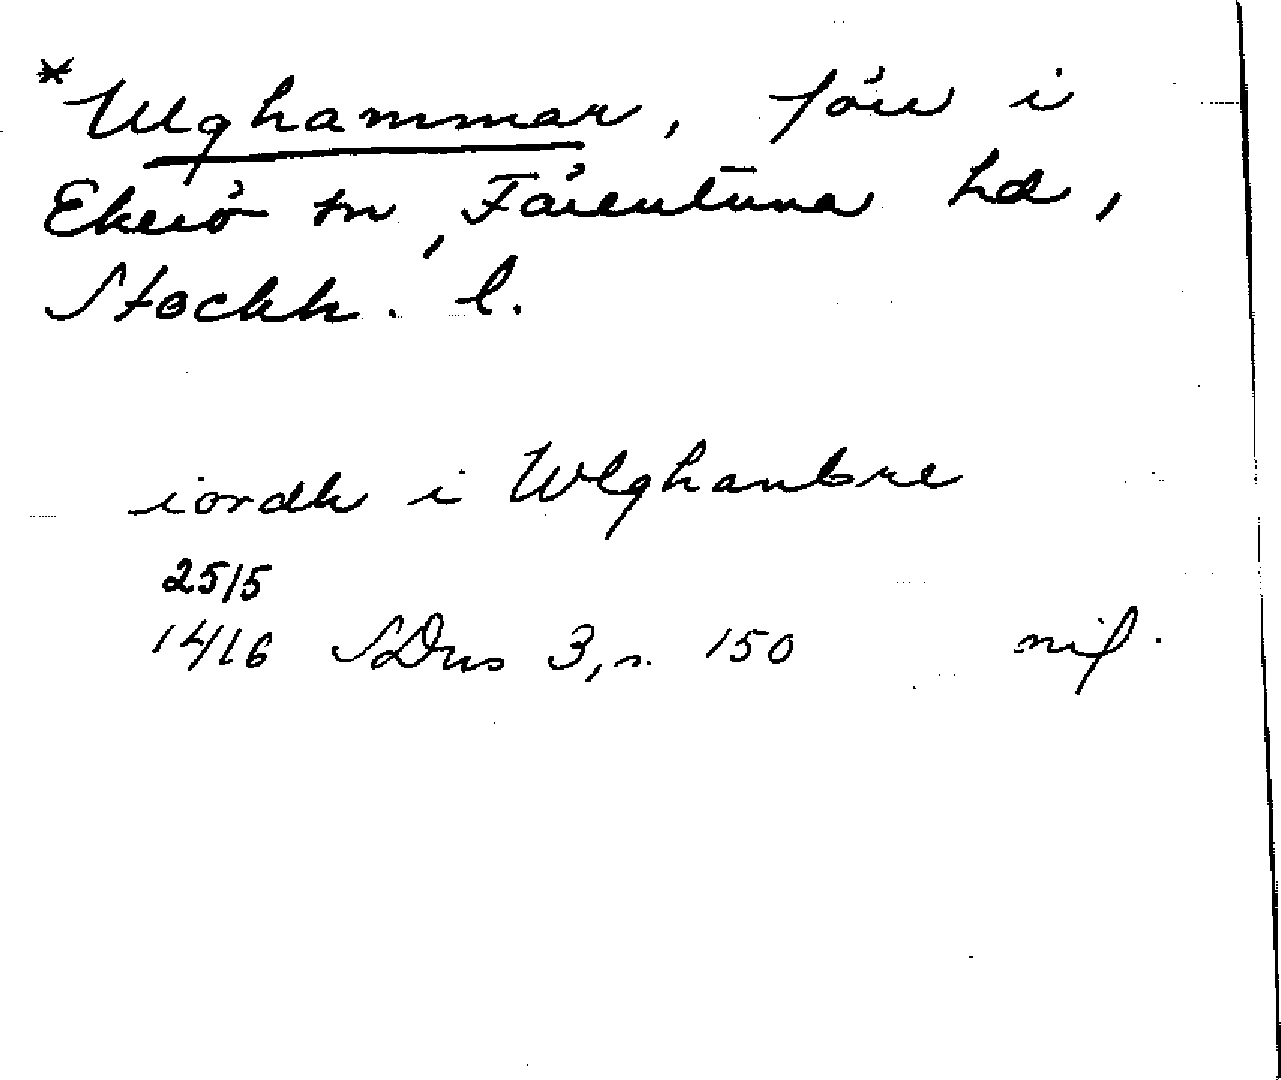 *Ulghammar, förr i
Ekerö sn, Färentuna hd,
Stockh. l.
iordh i Wlghambre
25/5
1416 SDns 3, s. 150 nif.